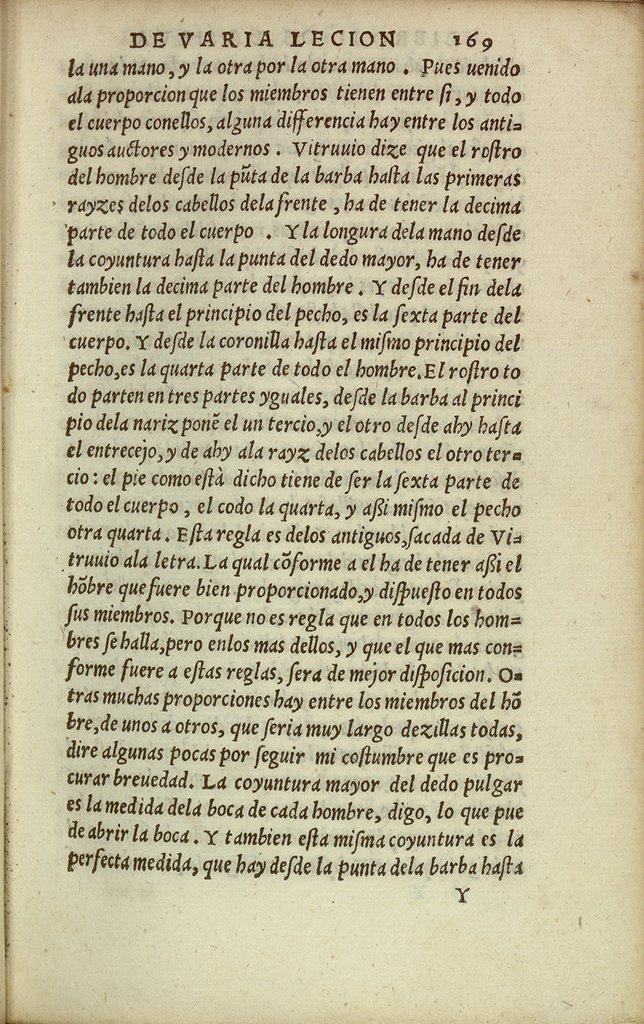 DE VARIA LECION 169
la una mano, y la otra por la otra mano . Pues uenido
ala proporcion que los miembros tienen entre ſi, y todo
el cuerpo conellos, alguna differencia hay entre los anti=
guos auctores y modernos . Vitruuio dize que el roſtro
del hombre deſde la pũta de la barba haſta las primeras
rayzes delos cabellos dela frente , ha de tener la decima
parte de todo el cuerpo . Y la longura dela mano deſde
la coyuntura haſta la punta del dedo mayor, ha de tener
tambien la decima parte del hombre . Y deſde el fin dela
frente haſta el principio del pecho, es la ſexta parte del
cuerpo. Y deſde la coronilla haſta el miſmo principio del
pecho,es la quarta parte de todo el hombre. El roſtro to
do parten en tres partes yguales, deſde la barba al princi
pio dela nariz ponẽ el un tercio,y el otro deſde ahy haſta
el entrecejo, y de ahy ala rayz delos cabellos el otro ter=
cio : el pie como eſtà dicho tiene de ſer la ſexta parte de
todo el cuerpo , el codo la quarta, y aßi miſmo el pecho
otra quarta . Eſta regla es delos antiguos,ſacada de Vi=
truuio ala letra. La qual cõforme a el ha de tener aßi el
hõbre que fuere bien proporcionado,y diſpueſto en todos
ſus miembros. Porque no es regla que en todos los hom=
bres ſe halla,pero enlos mas dellos, y que el que mas con=
forme fuere a eſtas reglas, ſera de mejor diſpoſicion. O=
tras muchas proporciones hay entre los miembros del hõ
bre,de unos a otros, que ſeria muy largo dezillas todas,
dire algunas pocas por ſeguir mi coſtumbre que es pro=
curar breuedad. La coyuntura mayor del dedo pulgar
es la medida dela boca de cada hombre, digo, lo que pue
de abrir la boca . Y tambien eſta miſma coyuntura es la
perfecta medida, que hay deſde la punta dela barba haſta
Y